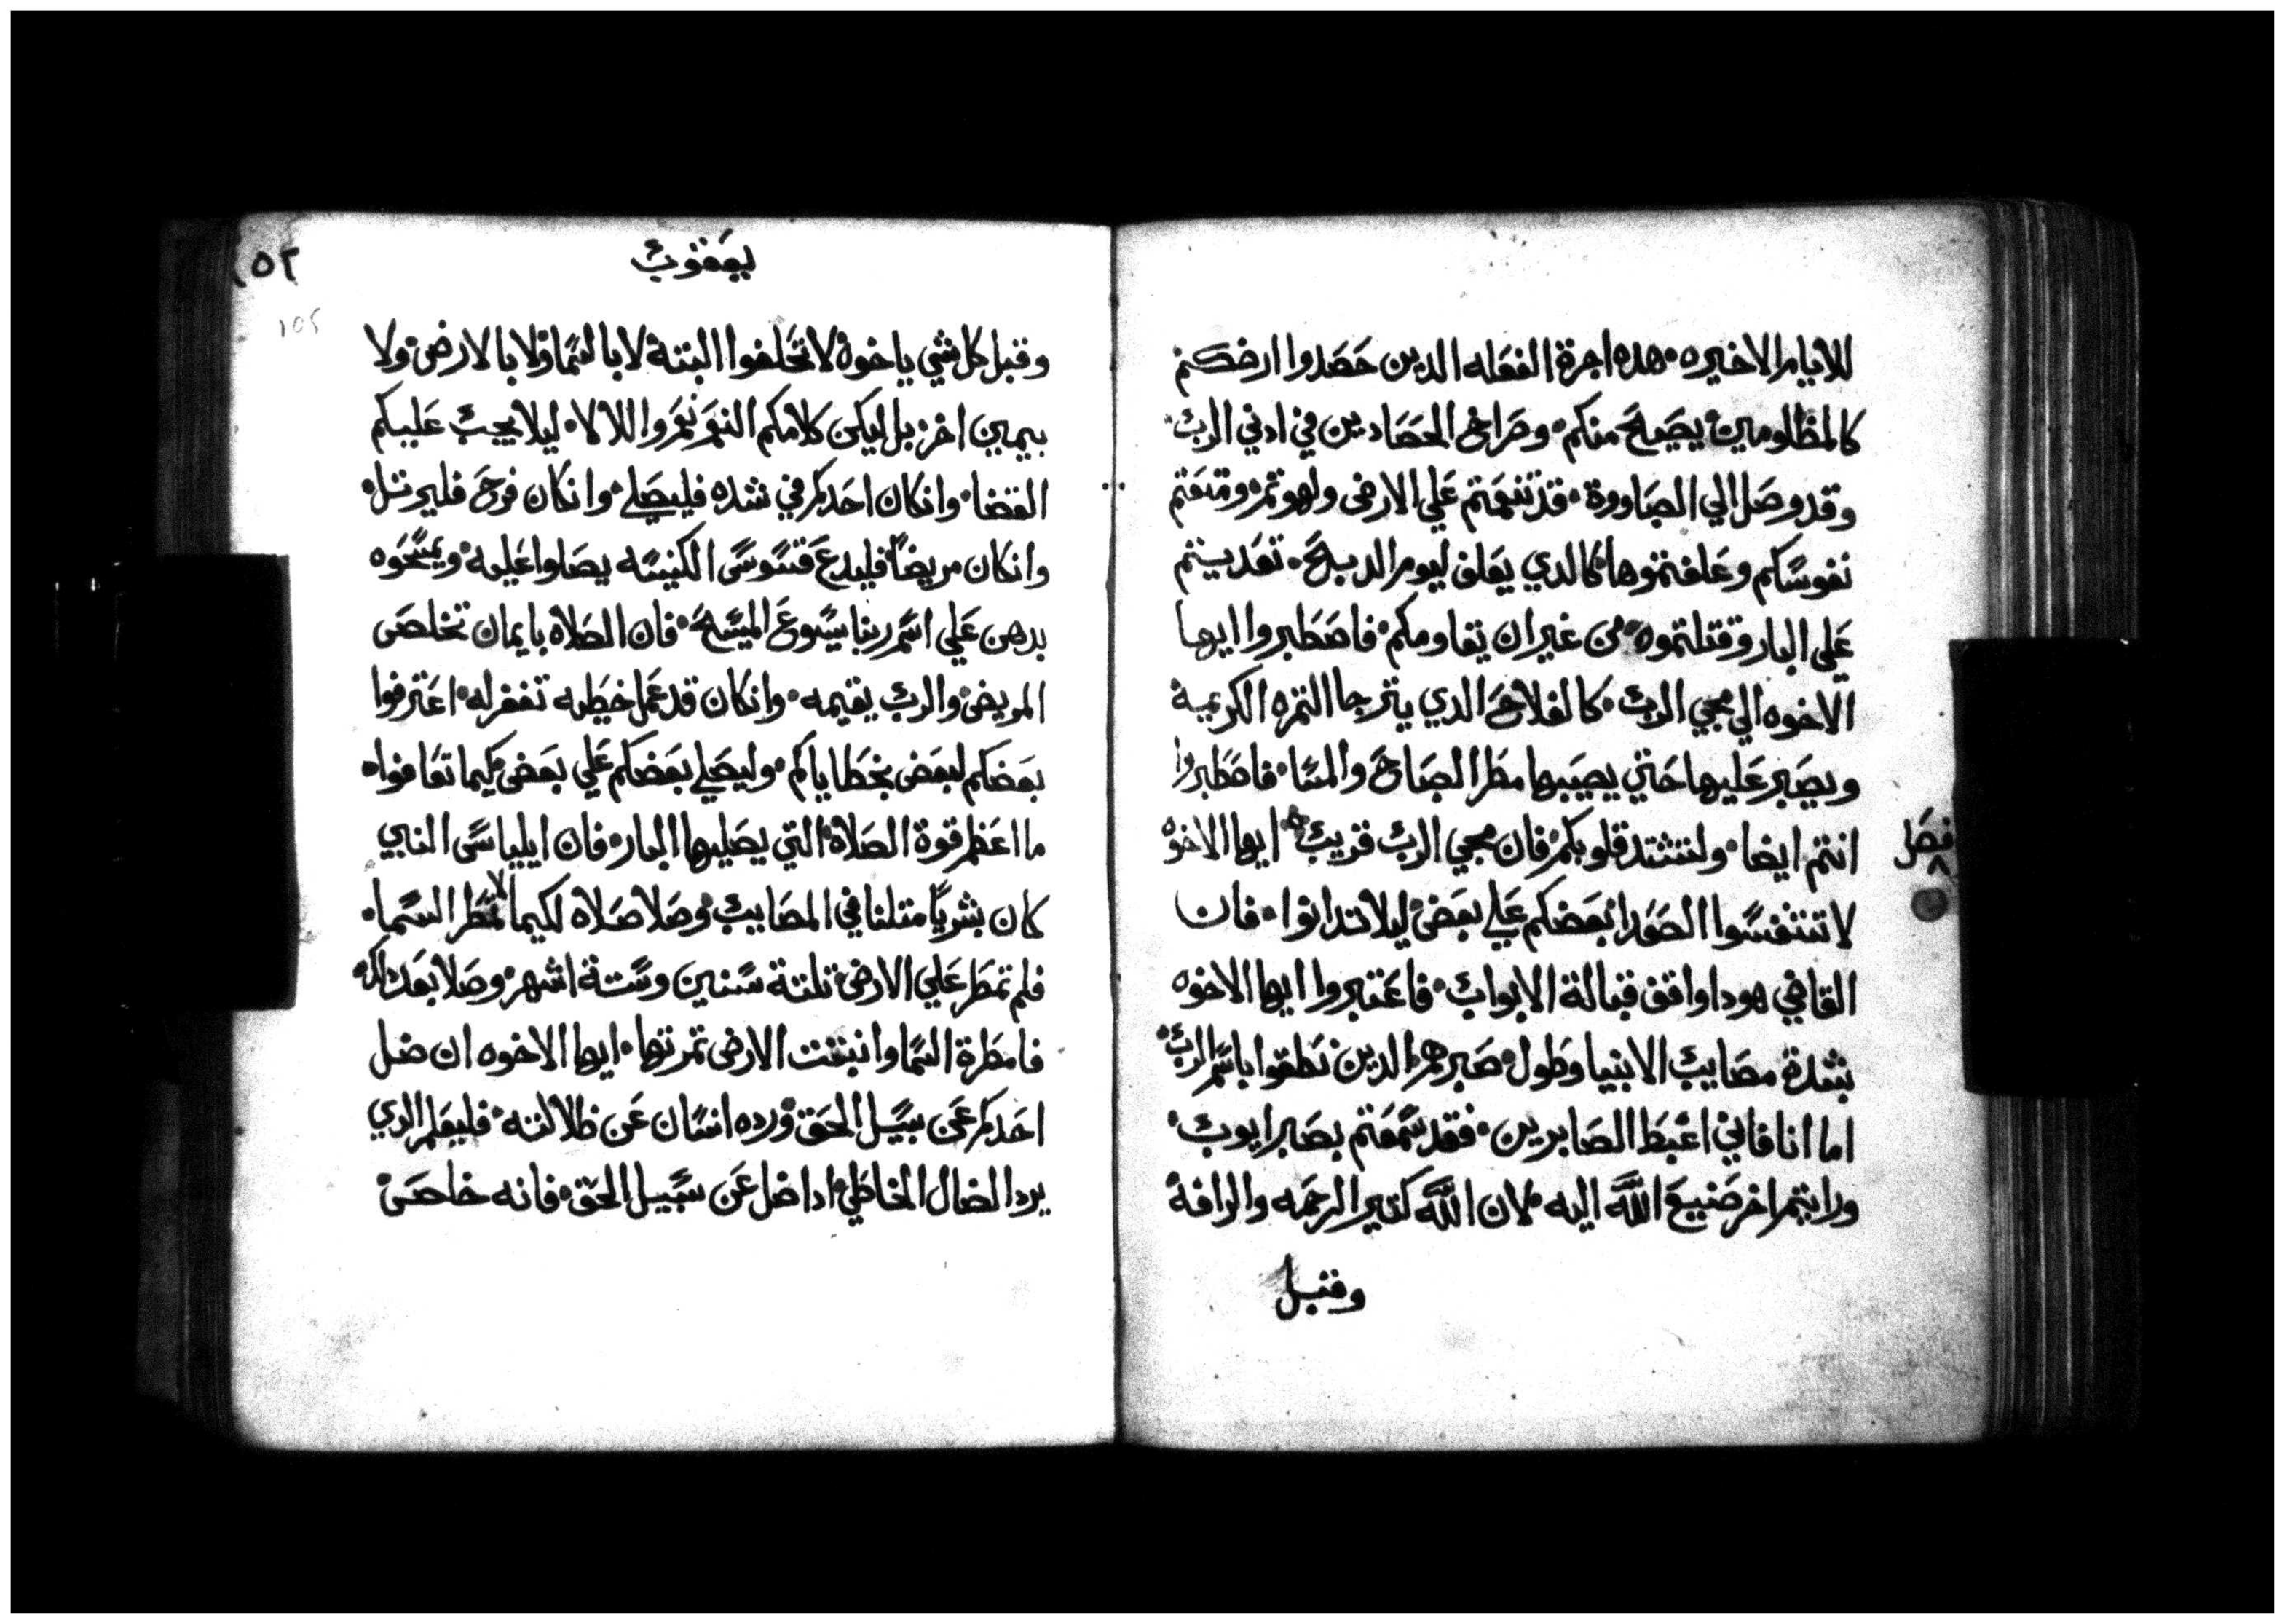 للايام الاخيره هده اجرة الفعله الدين حصدوا ارضكم
كالمظلومين يصيح منكم وصراخ الحصادين في ادني الرب
وقد وصل الي الصاووة قد تنعمتم علي الارض ولهوتم ومتعتم
نفوسكم وعلفتموها كالدي يعلف ليوم الدبح تعديتم
علي البار وقتلتموه من غير ان يقاومكم فاصطبروا ايها
الاخوه الي مجي الرب كالفلاح الدي يترجا التمره الكريمة
ويصبر عليها حتي يصيبها مطر الصباح والمسا فاصطبروا
انتم ايضا ولتشتد قلوبكم فان مجي الرب قريب ايها الاخوه
فصل ٨
لا تتنفسوا الصعدا بعضكم علي بعض ليلا تدانوا فان
القاضي هودا واقف قبالة الابواب فاعتبروا ايها الاخوه
بشدة مصايب الانبيا وطول صبرهم الدين نطقوا باسم الرب
اما انا فاني اغبط الصابرين فقد سمعتم بصبر ايوب
ورايتم اخر صنيع اللّه اليه لان اللّه كتير الرحمه والرافة
وقبل
يعقوب
١٥٢
105
وقبل كل شي ياخوة لا تحلفوا البتة لا بالسما ولا بالارض ولا
بيمين اخر بل ليكن كلامكم النعم نعم واللا لا ليلا يجب عليكم
القضا وان كان احدكم في شده فليصلي وان كان فرح فليرتل
وان كان مريضاً فليدع قسوس الكنيسه يصلوا عليه ويمسحوه
بدهن علي اسم ربنا يسوع المسيح فان الصلاه بايمان تخلص
المريض والرب يقيمه وان كان قد عمل خطيه تغفر له اعترفوا
بعضكم لبعض بخطاياكم وليصلي بعضكم علي بعض كيما تعافوا
ما اعظم قوة الصلاة التي يصليها البار فان ايلياس النبي
كان بشرياً متلنا في المصايب وصلا صلاه لكيما لا تمطر السما
فلم تمطر علي الارض تلتة سنين وستة اشهر وصلا بعد دلك
فامطرة السما وانبتت الارض تمرتها ايها الاخوه ان ضل
احدكم عن سبيل الحق ورده انسان عن ظلالته فليعلم الدي
يرد الضال الخاطي ادا ضل عن سبيل الحق فانه خلص